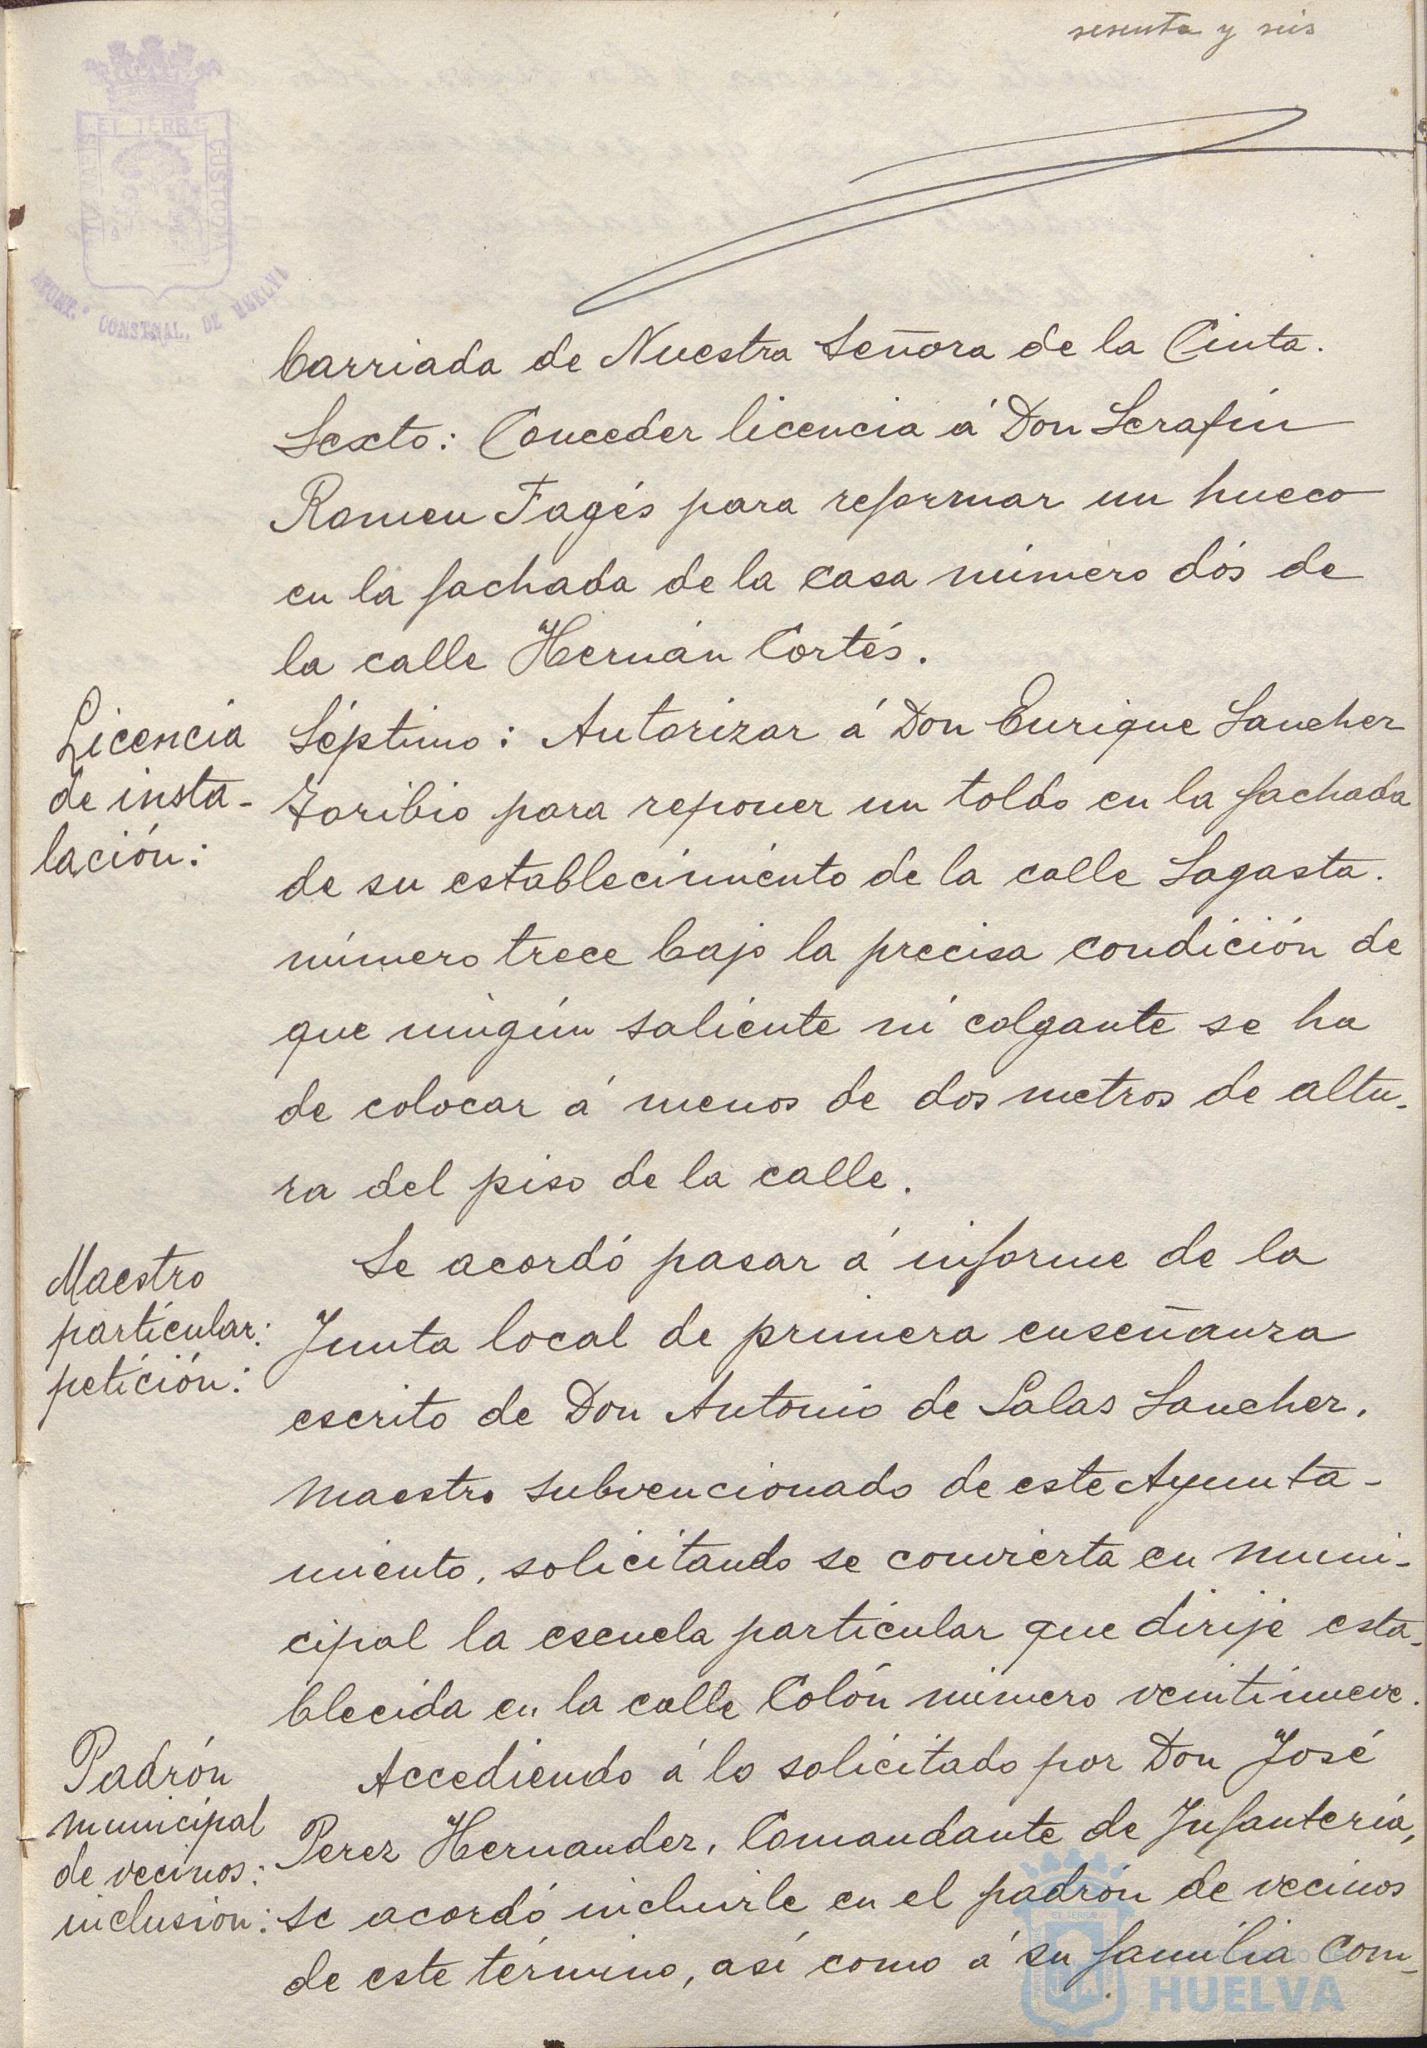 sesenta y seis
PORTUS MARIS ET TERRÆ CUSTODIA
AYUNT.º CONSTNAL. DE HUELVA
barriada de Nuestra Señora de la Cinta.
Sexto: Conceder licencia á Don Serafín
Romeu Fagés para reformar un hueco
en la fachada de la casa número dós de
la calle Hernán Cortés.
Licencia
de insta-
lación:
Séptimo: Autorizar á Don Enrique Sanchez
Toribio para reponer un toldo en la fachada
de su establecimiento de la calle Sagasta.
número trece bajo la precisa condición de
que ningún saliente ni colgante se ha
de colocar á menos de dos metros de altu-
ra del piso de la calle.
Maestro
particular:
petición:
Se acordó pasar á informe de la
Junta local de primera enseñanza
escrito de Don Antonio de Salas Sanchez,
maestro subvencionado de este Ayunta-
miento, solicitando se convierta en muni-
cipal la escuela particular que dirije esta-
blecida en la calle Colón número veintinueve.
Padrón
municipal
de vecinos:
inclusión:
Accediendo á lo solicitado por Don José
Perez Hernandez, Comandante de Infantería,
se acordó incluirle en el padrón de vecinos
de este término, así como á su familia com-
HUELVA